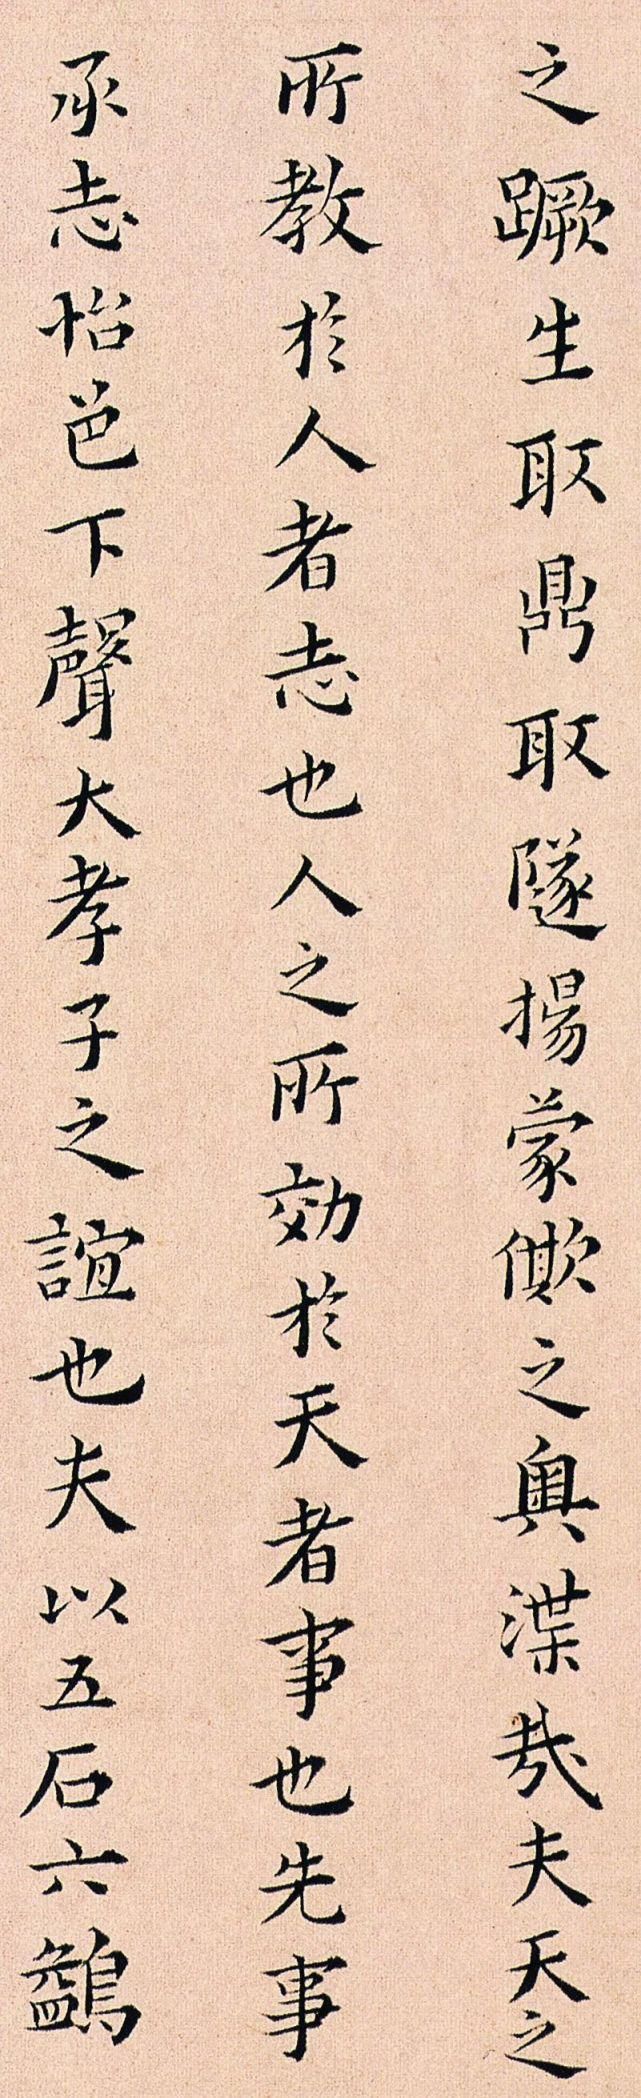 之蹶生取鼎取隧揚蒙僛之輿渫哉夫天之
所教於人者志也人之所効於天者事也先事
承志怡邑下聲大孝子之誼也夫以五石六鷁